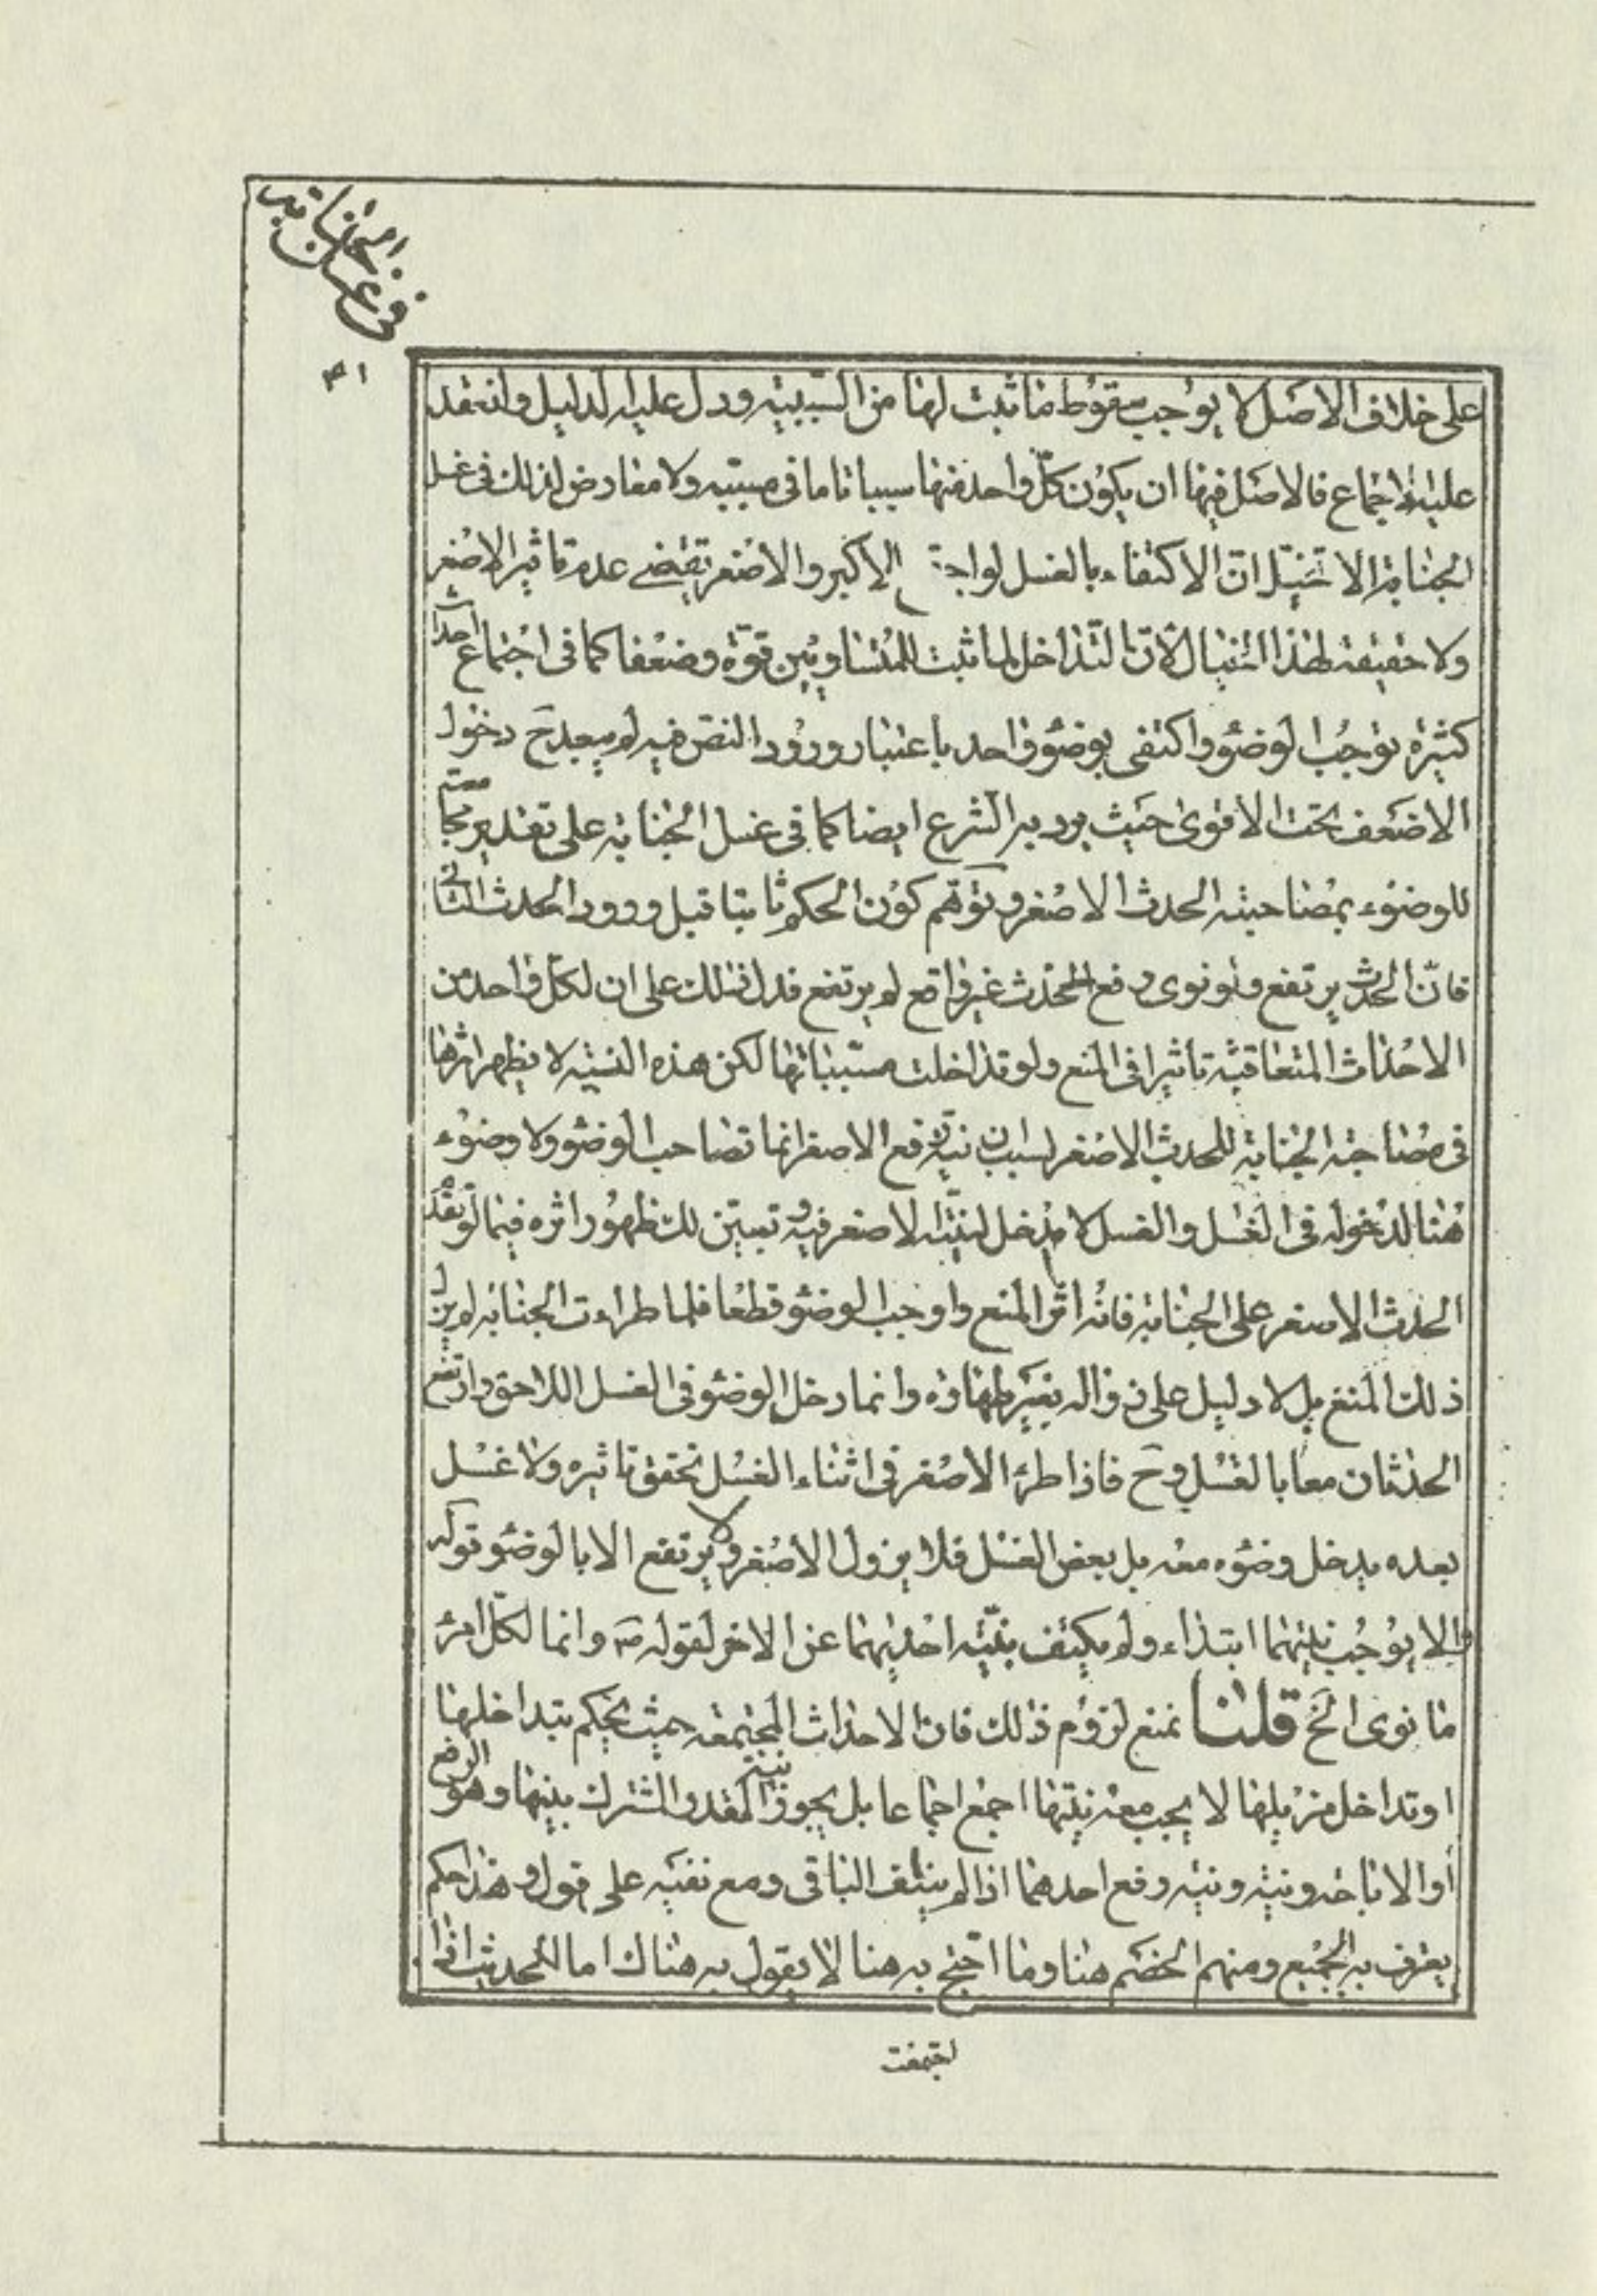 في غسل الجنابة
٤١
على خلاف الاصل لا يوجب سقوط ما ثبت لها من السببية ودل عليه الدليل وانعقد
عليه الاجماع فالاصل فيها ان يكون كل واحد منها سببا تاما في مسببه ولا معارض لذلك في غسل
الجنابة الا تخيل ان الاكتفاء بالغسل لو اجتمع الاكبر والاصغر يقتضى عدم تاثير الاصغر
ولا حقيقة لهذا الخيال لان التداخل لما ثبت للمتساويين قوة وضعفا كما في اجتماع احداث
كثيرة توجب الوضوء واكتفى بوضوء واحد باعتبار ورود النص فيه لم يبعد ح دخول
الاضعف تحت الاقوى حيث يرد به الشرع ايضا كما في غسل الجنابة على تقدير مجامعته
للوضوء بمصاحبته الحدث الاصغر وتوهم كون الحكم ثابتا قبل ورود الحدث الثانى
فان الحدث يرتفع ولو نوى رفع المحدث غير واقع لم يرتفع فدل ذلك على ان لكل واحد من
الاحداث المتعاقبة تاثيرا في المنع ولو تداخلت مسبباتها لكن هذه النسبة لا يظهر اثرها
في مصاحبة الجنابة للحدث الاصغر لسبب ان نية رفع الاصغر انما تصاحب الوضوء ولا وضوء
هنا لدخوله في الغسل والغسل لا مدخل لنية الاصغر فيه وتبين لك ظهور اثره فيما لو تقدم
الحدث الاصغر على الجنابة فانه اثر المنع واوجب الوضوء قطعا فلما طراءت الجنابة لم يزل
ذلك المنع بل لا دليل على زواله بغير طهارة وانما دخل الوضوء في الغسل اللاحق وارتفع
الحدثان معا بالغسل وح فاذا طرء الاصغر في اثناء الغسل تحقق تاثيره ولا غسل
بعده يدخل وضوءه معه بل بعض الغسل فلا يزول الاصغر ولا يرتفع الا بالوضوء قوله
والا يوجب نيتهما ابتداء ولم يكتف بنية احديهما عن الاخر لقوله ص وانما لكل امرء
ما نوى الخ قلنا نمنع لزوم ذلك فان الاحداث المجتمعة حيث يحكم بتداخلها
او تداخل مزيلها لا يجب معه نيتها اجمع اجماعا بل يجوز نية القدر المشترك بينها وهو الرفع
أو الاباحة ونية ونية رفع احدهما اذا لم ينتف الباقى ومع نفيه على قول وهذا حكم
يعترف به الجميع ومنهم الخصم هنا وما احتج به هنا لا يقول به هناك اما الحدث اذا
اجتمعت